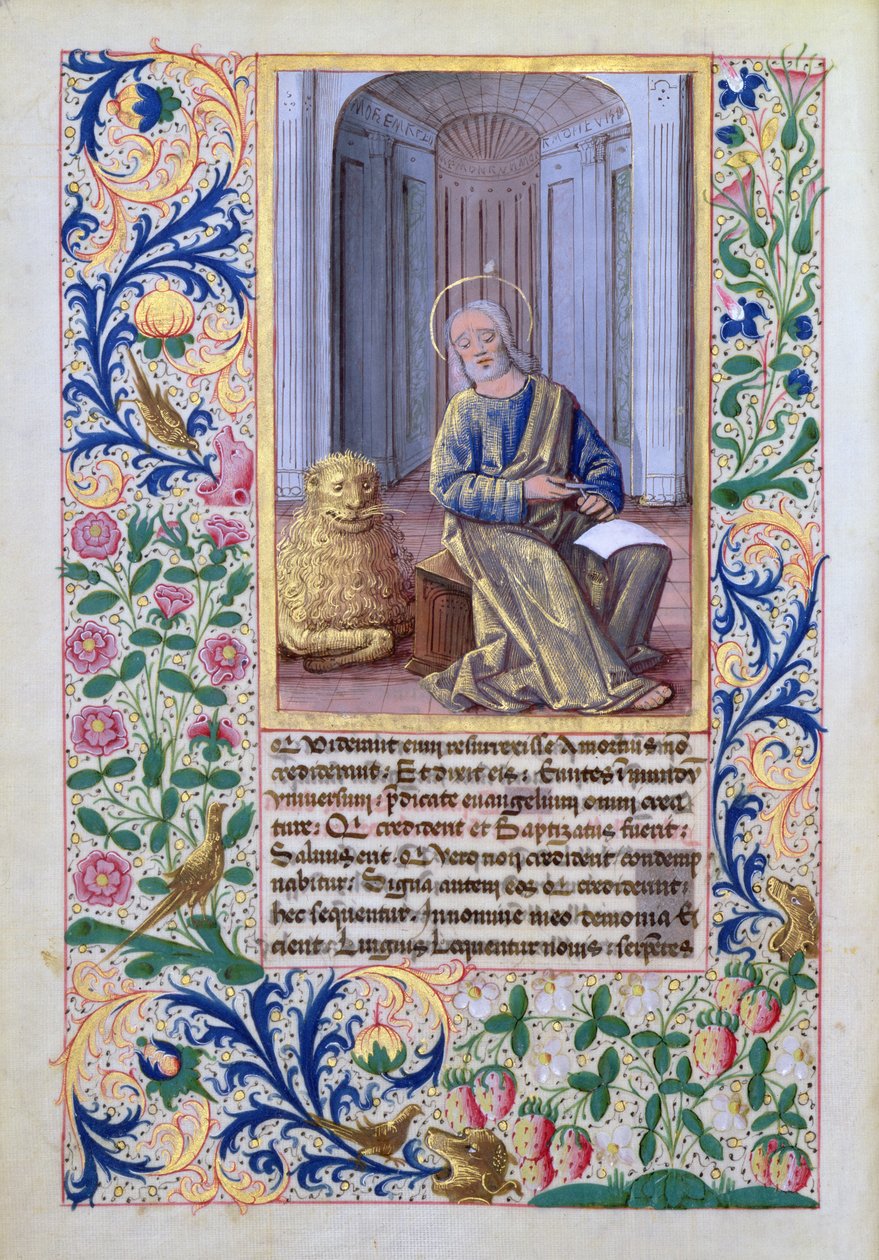 Q Viderunt eum resurrexisse A mortuis nō
crediderunt: Et dixit eis: Euntes ī mundū
vniuersum. p̄dicate euangelium omni crea
ture: Q crediderit et Baptizatus fuerit:
Saluus erit. Q vero non crediderit condemp
nabitur: Signa autem eos Q crediderint:
hec sequentur. In nomine meo demonia Ei
cient. Linguis loquentur nouis: serpētes